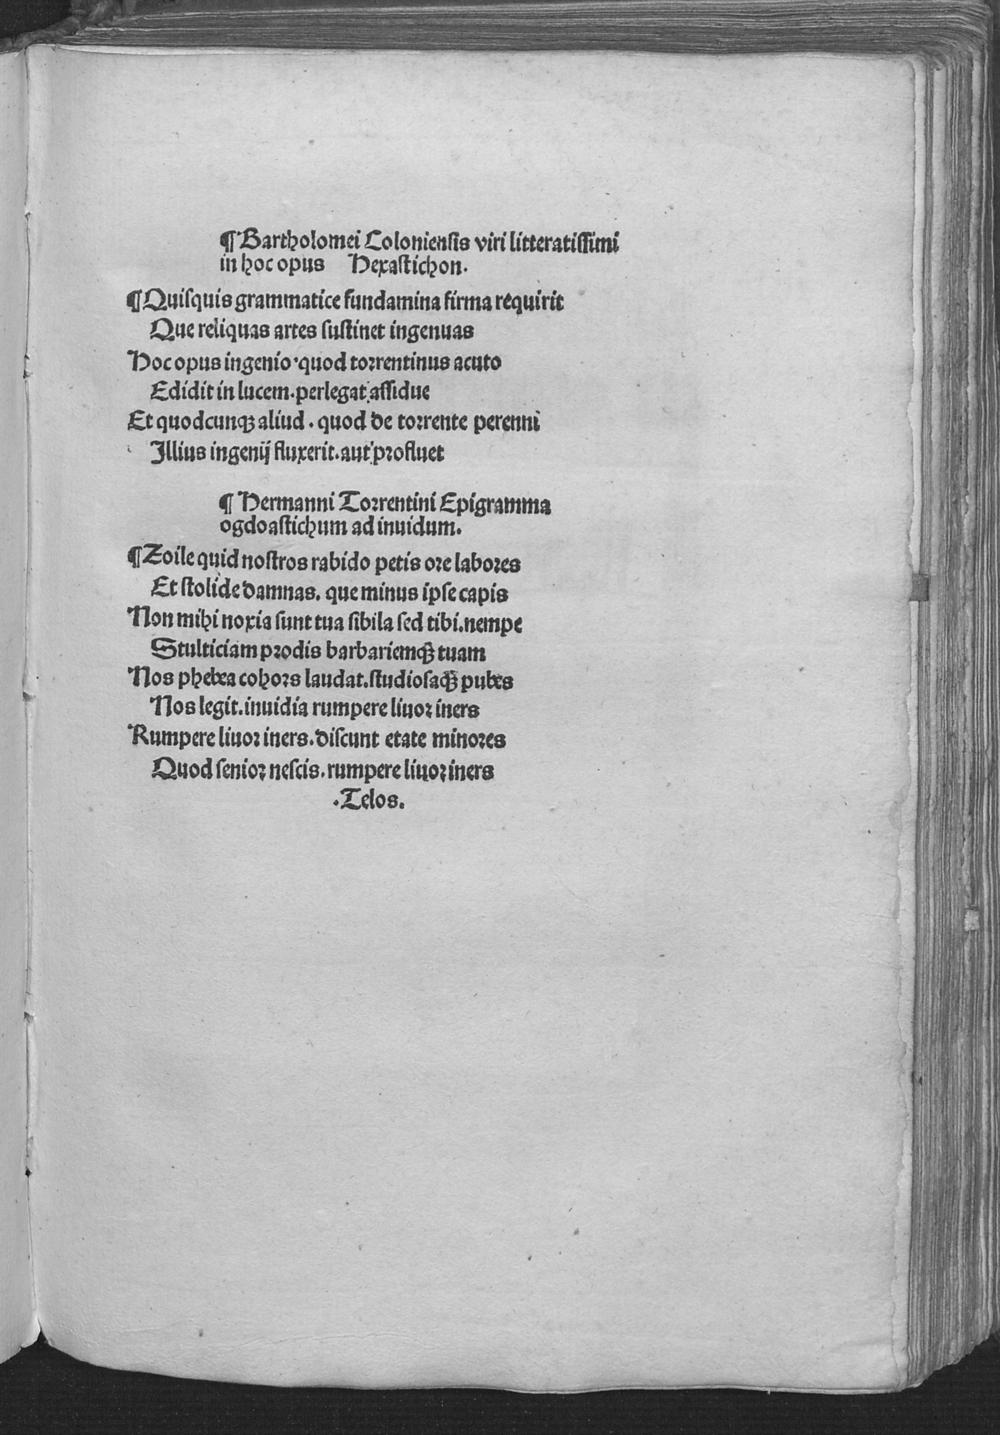 ¶ Bartholomei Coloniensis viri litteratissimi
in hoc opus Hexastichon.
¶ Quisquis grammatice fundamina firma requirit
Que reliquas artes sustinet ingenuas
Hoc opus ingenio·quod torrentinus acuto
Edidit in lucem.perlegat assidue
Et quodcunqꝫ aliud . quod de torrente perenni
Illius ingenij fluxerit.aut profluet
¶ Hermanni Torrentini Epigramma
ogdoastichum ad inuidum.
¶ Zoile quid nostros rabido petis ore labores
Et stolide damnas. que minus ipse capis
Non mihi noxia sunt tua sibila sed tibi.nempe
Stulticiam prodis barbariemqꝫ tuam
Nos phebea cohors laudat.studiosaqꝫ pubes
Nos legit.inuidia rumpere liuor iners
Rumpere liuor iners.discunt etate minores
Quod senior nescis.rumpere liuor iners
.Telos.